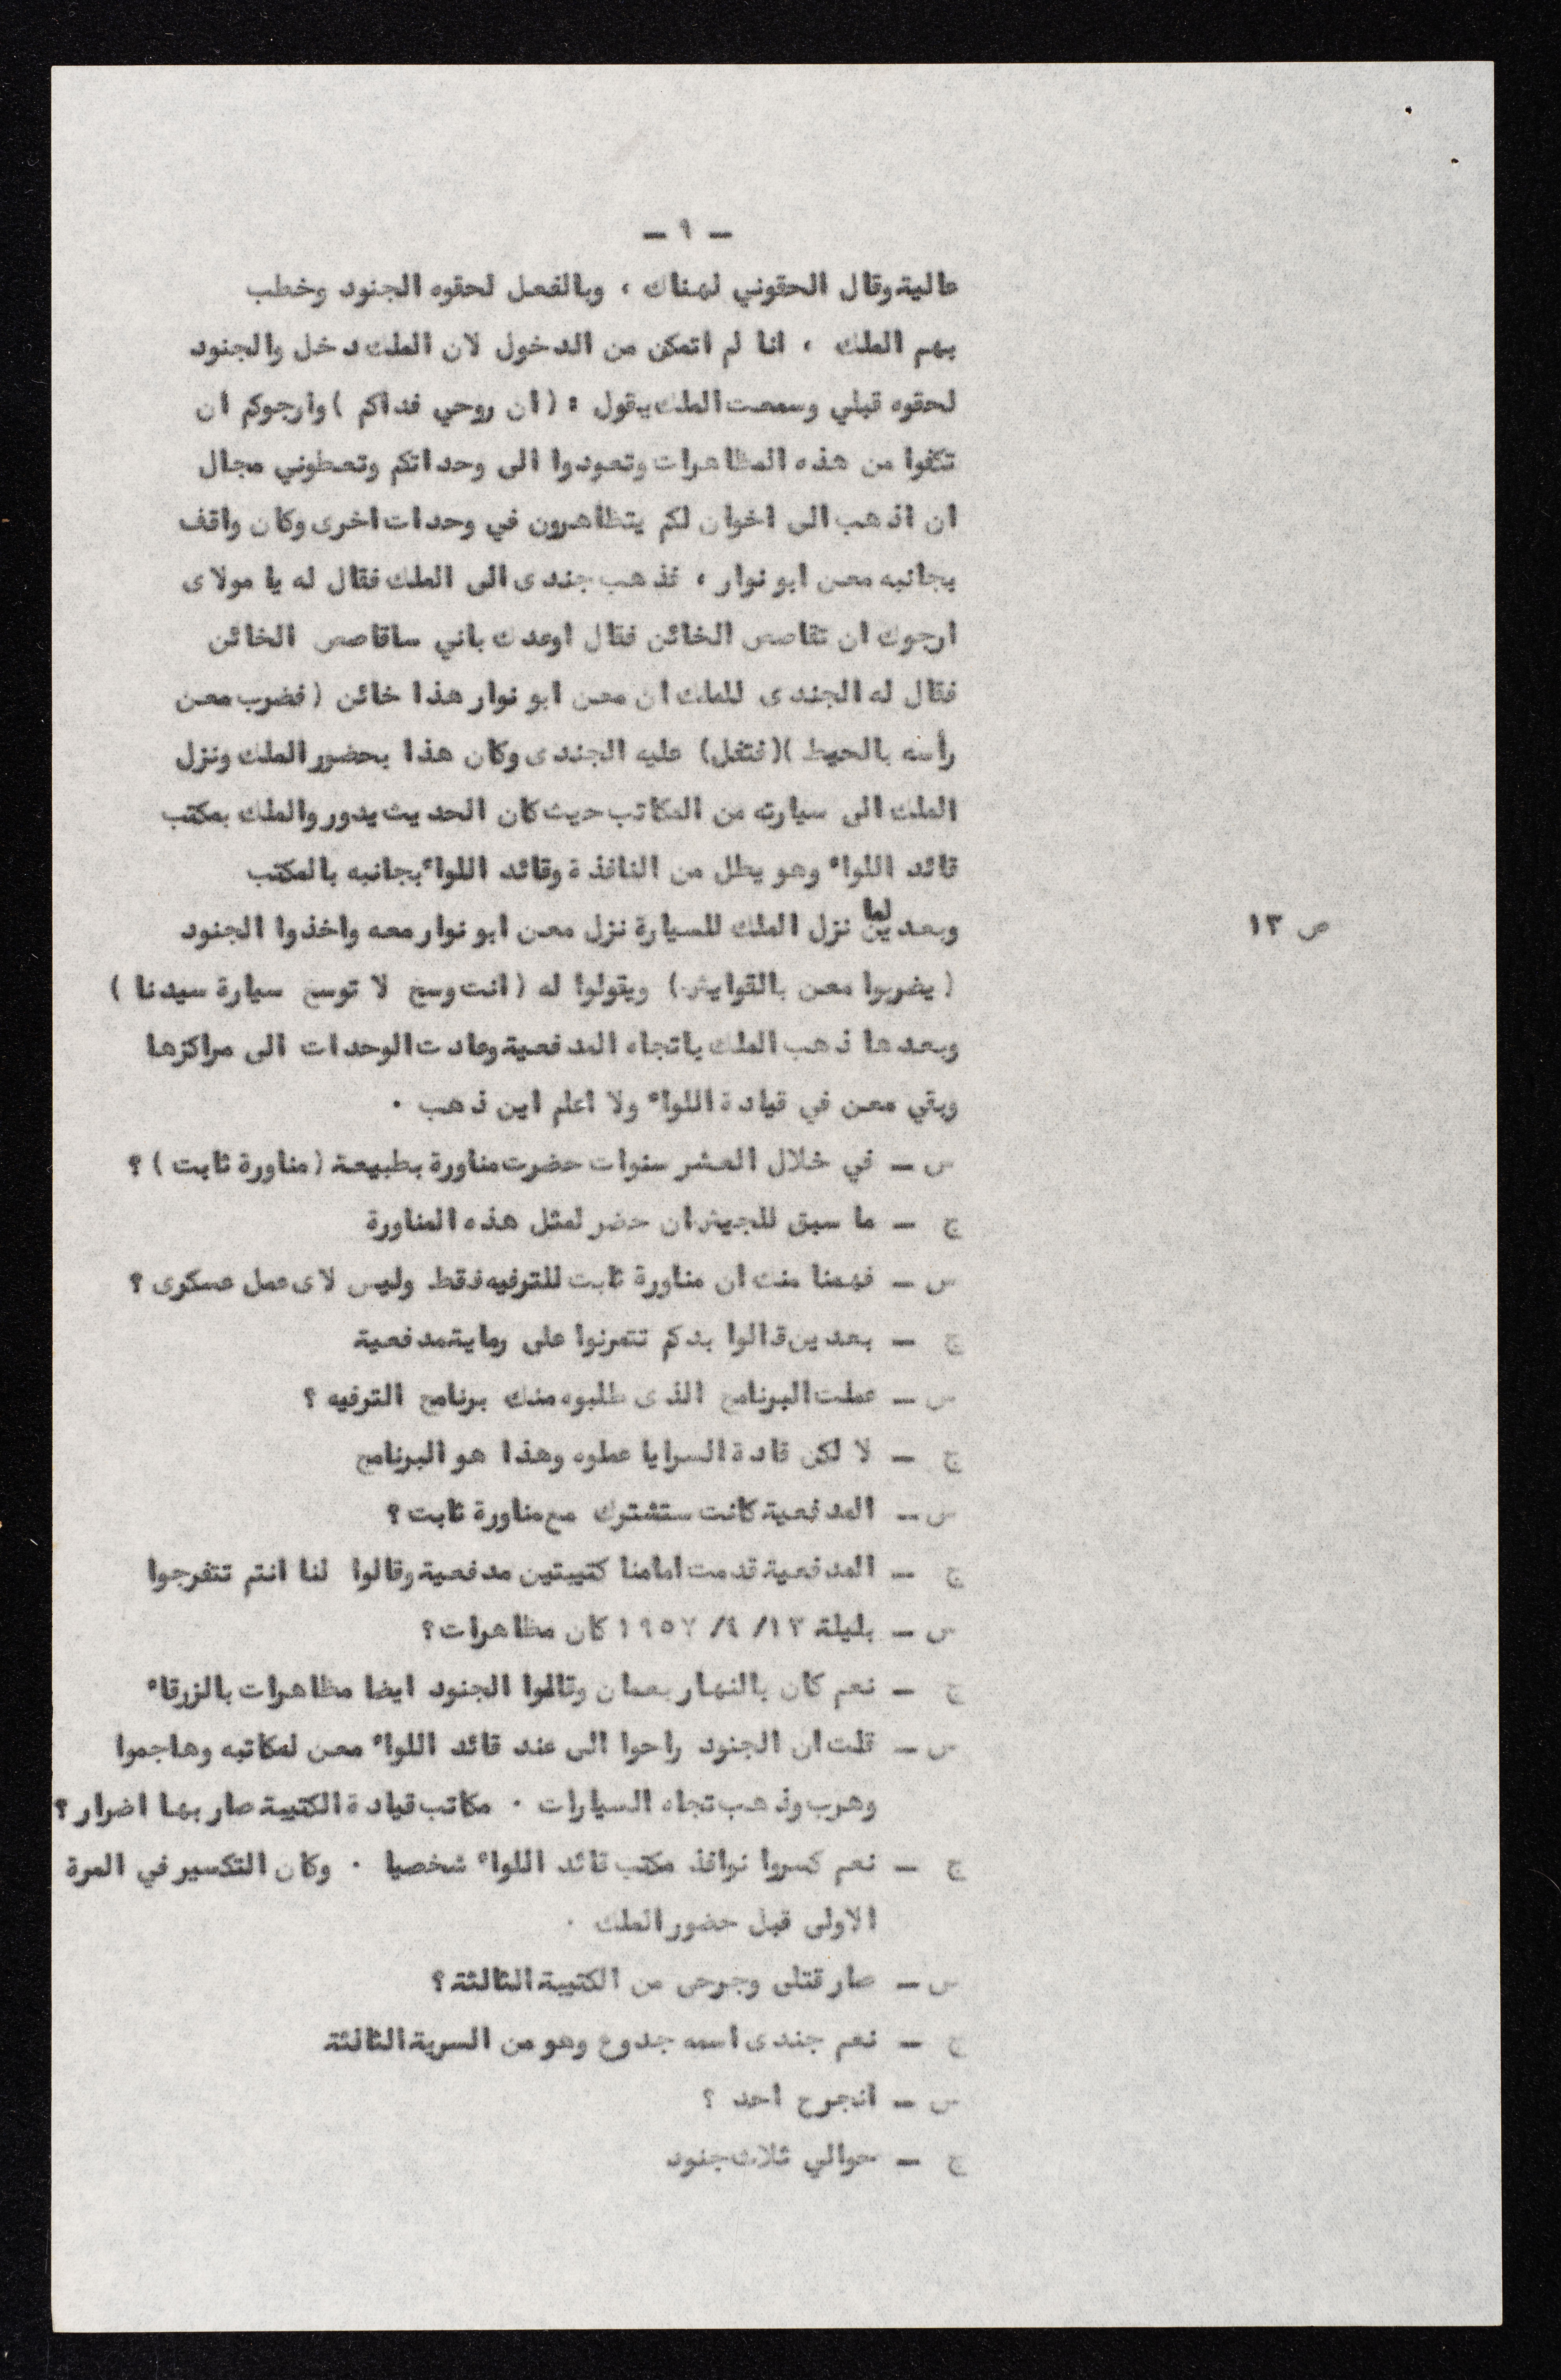 – ٩ –
عالية وقال الحقوني لهناك ، وبالفعل لحقوه الجنود وخطب
بهم الملك ، انا لم اتمكن من الدخول لان الملك دخل والجنود
لحقوه قبلي وسمعت الملك يقول : ( ان روحي فداكم ) وارجوكم ان
تكفوا من هذه المظاهرات وتعودوا الى وحداتكم وتعطوني مجال
ان اذهب الى اخوان لكم يتظاهرون في وحدات اخرى وكان واقف
بجانبه معن ابو نوار ، فذهب جندى الى الملك فقال له يا مولاى
ارجوك ان تقاصص الخائن فقال اوعدك باني ساقاصص الخائن
فقال له الجندى للملك ان معن ابو نوار هذا خائن ( فضرب معن
رأسه بالحيط )( فتفل ) عليه الجندى وكان هذا بحضور الملك ونزل
الملك الى سيارته من المكاتب حيث كان الحديث يدور والملك بمكتب
قائد اللواء وهو يطل من النافذة وقائد اللواء بجانبه بالمكتب
ص ١٣
وبعدين لما نزل الملك للسيارة نزل معن ابو نوار معه واخذوا الجنود
( يضربوا معن بالقوايش ) ويقولوا له ( انت وسخ لا توسخ سيارة سيدنا )
وبعدها ذهب الملك باتجاه المدفعية وعادت الوحدات الى مراكزها
وبقي معن في قيادة اللواء ولا اعلم اين ذهب .
س – في خلال العشر سنوات حضرت مناورة بطبيعة ( مناورة ثابت ) ؟
ج – ما سبق للجيش ان حضر لمثل هذه المناورة
س – فهمنا منك ان مناورة ثابت للترفيه فقط وليس لاى عمل عسكرى ؟
ج – بعدين قالوا بدكم تتمرنوا على رماية مدفعية
س – عملت البرنامج الذى طلبوه منك برنامج الترفيه ؟
ج – لا لكن قادة السرايا عملوه وهذا هو البرنامج
س – المدفعية كانت ستشترك مع مناورة ثابت ؟
ج – المدفعية قدمت امامنا كتيبتين مدفعية وقالوا لنا انتم تتفرجوا
س – بليلة ١٣/ ٤/ ١٩٥٧ كان مظاهرات ؟
ج – نعم كان بالنهار بعمان وقالوا الجنود ايضا مظاهرات بالزرقاء
س – قلت ان الجنود راحوا الى عند قائد اللواء معن لمكاتبه وهاجموا
وهرب وذهب تجاه السيارات . مكاتب قيادة الكتيبة صار بها اضرار ؟
ج – نعم كسروا نوافذ مكتب قائد اللواء شخصيا . وكان التكسير في المرة
الاولى قبل حضور الملك .
س – صار قتلى وجرحى من الكتيبة الثالثة ؟
ج – نعم جندى اسمه جدوع وهو من السرية الثالثة
س – انجرح احد ؟
ج – حوالي ثلاث جنود